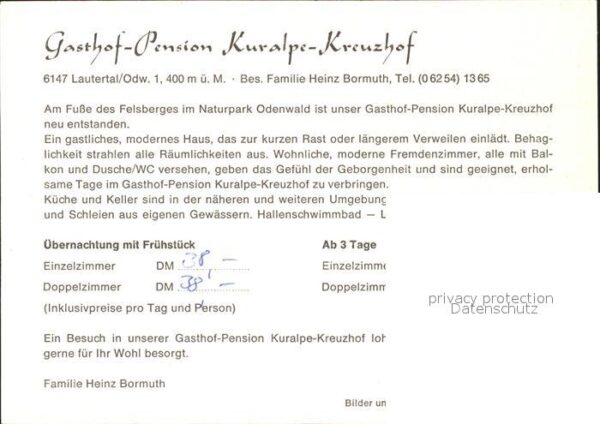 Gasthof-Pension Kuralpe-Kreuzhof
6147 Lautertal/Odw. 1, 400 m ü. M. · Bes. Familie Heinz Bormuth, Tel. (0 62 54) 13 65
Am Fuße des Felsberges im Naturpark Odenwald ist unser Gasthof-Pension Kuralpe-Kreuzhof
neu entstanden.
Ein gastliches, modernes Haus, das zur kurzen Rast oder längerem Verweilen einlädt. Behag-
lichkeit strahlen alle Räumlichkeiten aus. Wohnliche, moderne Fremdenzimmer, alle mit Bal-
kon und Dusche/WC versehen, geben das Gefühl der Geborgenheit und sind geeignet, erhol-
same Tage im Gasthof-Pension Kuralpe-Kreuzhof zu verbringen.
Küche und Keller sind in der näheren und weiteren Umgebung
und Schleien aus eigenen Gewässern. Hallenschwimmbad – L
Übernachtung mit Frühstück Ab 3 Tage
Einzelzimmer DM 38,– Einzelzimm
Doppelzimmer DM 38,– Doppelzimm
(Inklusivpreise pro Tag und Person)
privacy protection
Datenschutz
Ein Besuch in unserer Gasthof-Pension Kuralpe-Kreuzhof loh
gerne für Ihr Wohl besorgt.
Familie Heinz Bormuth
Bilder un